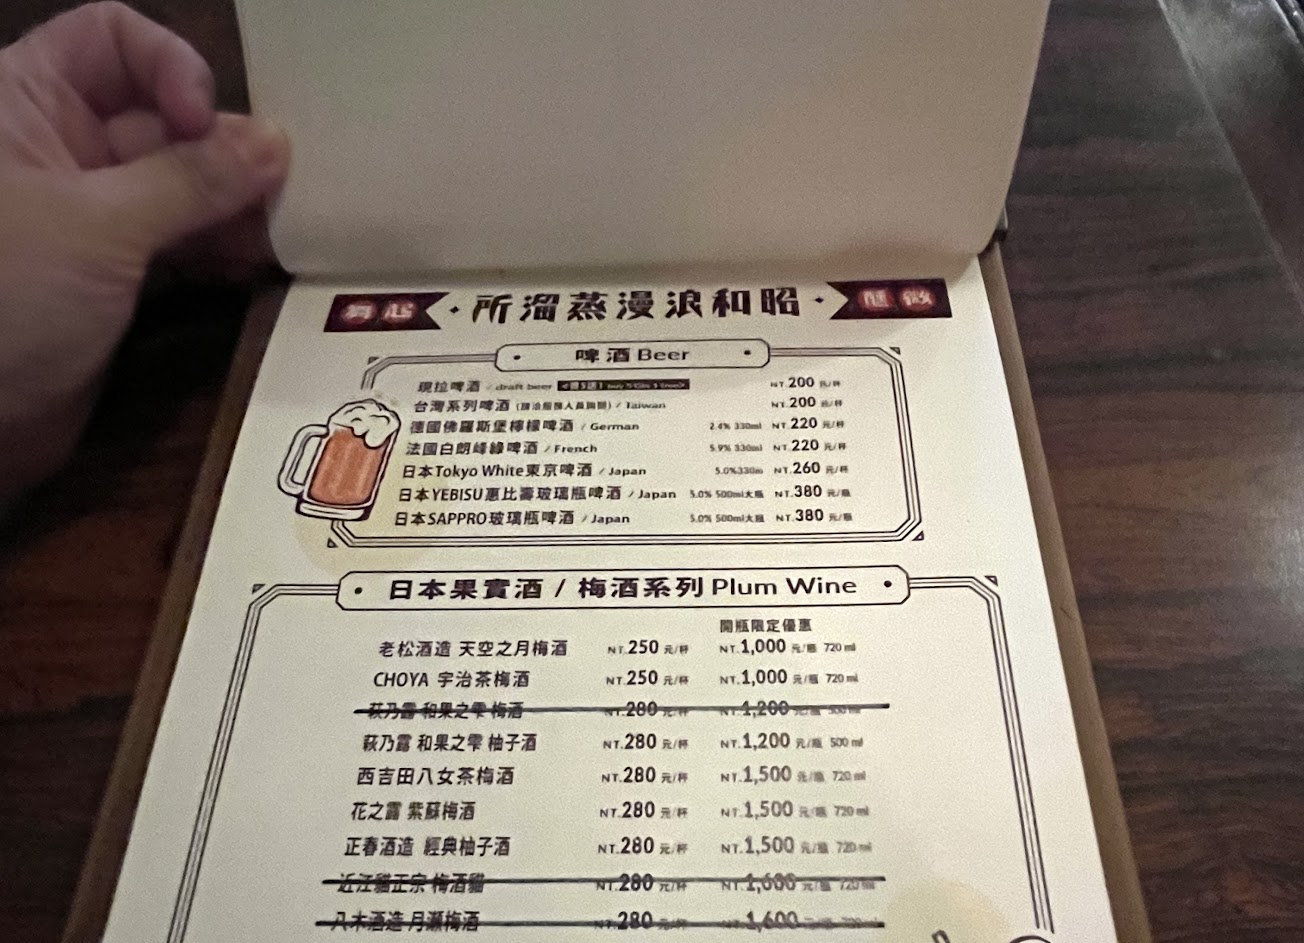 所溜蒸漫浪和昭
微醺
啤酒 Beer
現拉啤酒 / draft beer NT.200 元/杯
台灣系列啤酒 (請洽服務人員詢問) / Taiwan NT.200 元/杯
德國佛羅斯堡檸檬啤酒 / German 2.4% 330ml NT.220 元/杯
法國白朗峰綠啤酒 / French 5.9% 330ml NT.220 元/杯
日本Tokyo White東京啤酒 / Japan 5.0%330m NT.260 元/杯
日本YEBISU惠比壽玻璃瓶啤酒 / Japan 5.0% 500ml大瓶 NT.380 元/瓶
日本SAPPRO玻璃瓶啤酒 / Japan 5.0% 500ml大瓶 NT.380 元/瓶
日本果實酒 / 梅酒系列 Plum Wine
開瓶限定優惠
老松酒造 天空之月梅酒 NT.250 元/杯 NT.1,000 元/瓶 720 ml
CHOYA 宇治茶梅酒 NT.250 元/杯 NT.1,000 元/瓶 720 ml
萩乃露 和果之雫 梅酒 NT.280 元/杯 NT.1,200 元/瓶 500 ml
萩乃露 和果之雫 柚子酒 NT.280 元/杯 NT.1,200 元/瓶 500 ml
西吉田八女茶梅酒 NT.280 元/杯 NT.1,500 元/瓶 720 ml
花之露 紫蘇梅酒 NT.280 元/杯 NT.1,500 元/瓶 720 ml
正春酒造 經典柚子酒 NT.280 元/杯 NT.1,500 元/瓶 720 ml
近江貓正宗 梅酒貓 NT.280 元/杯 NT.1,600 元/瓶 720 ml
八木酒造 月瀨梅酒 NT.280 元/杯 NT.1,600 元/瓶